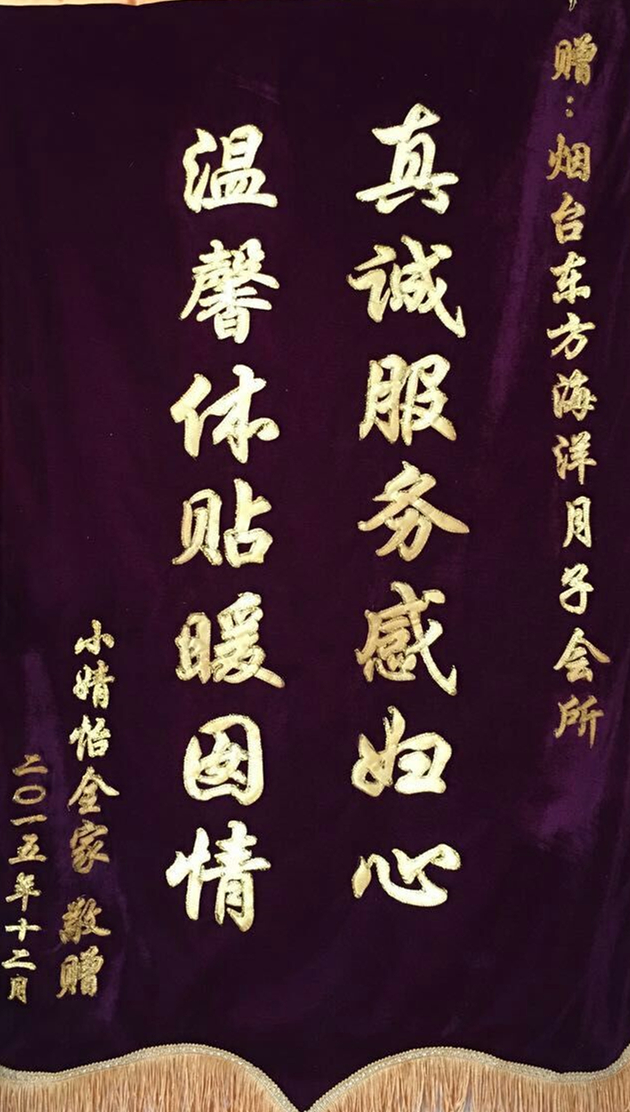 赠：烟台东方海洋月子会所
真诚服务感妇心
温馨体贴暖囡情
小婧怡全家 敬赠
二〇一五年十二月